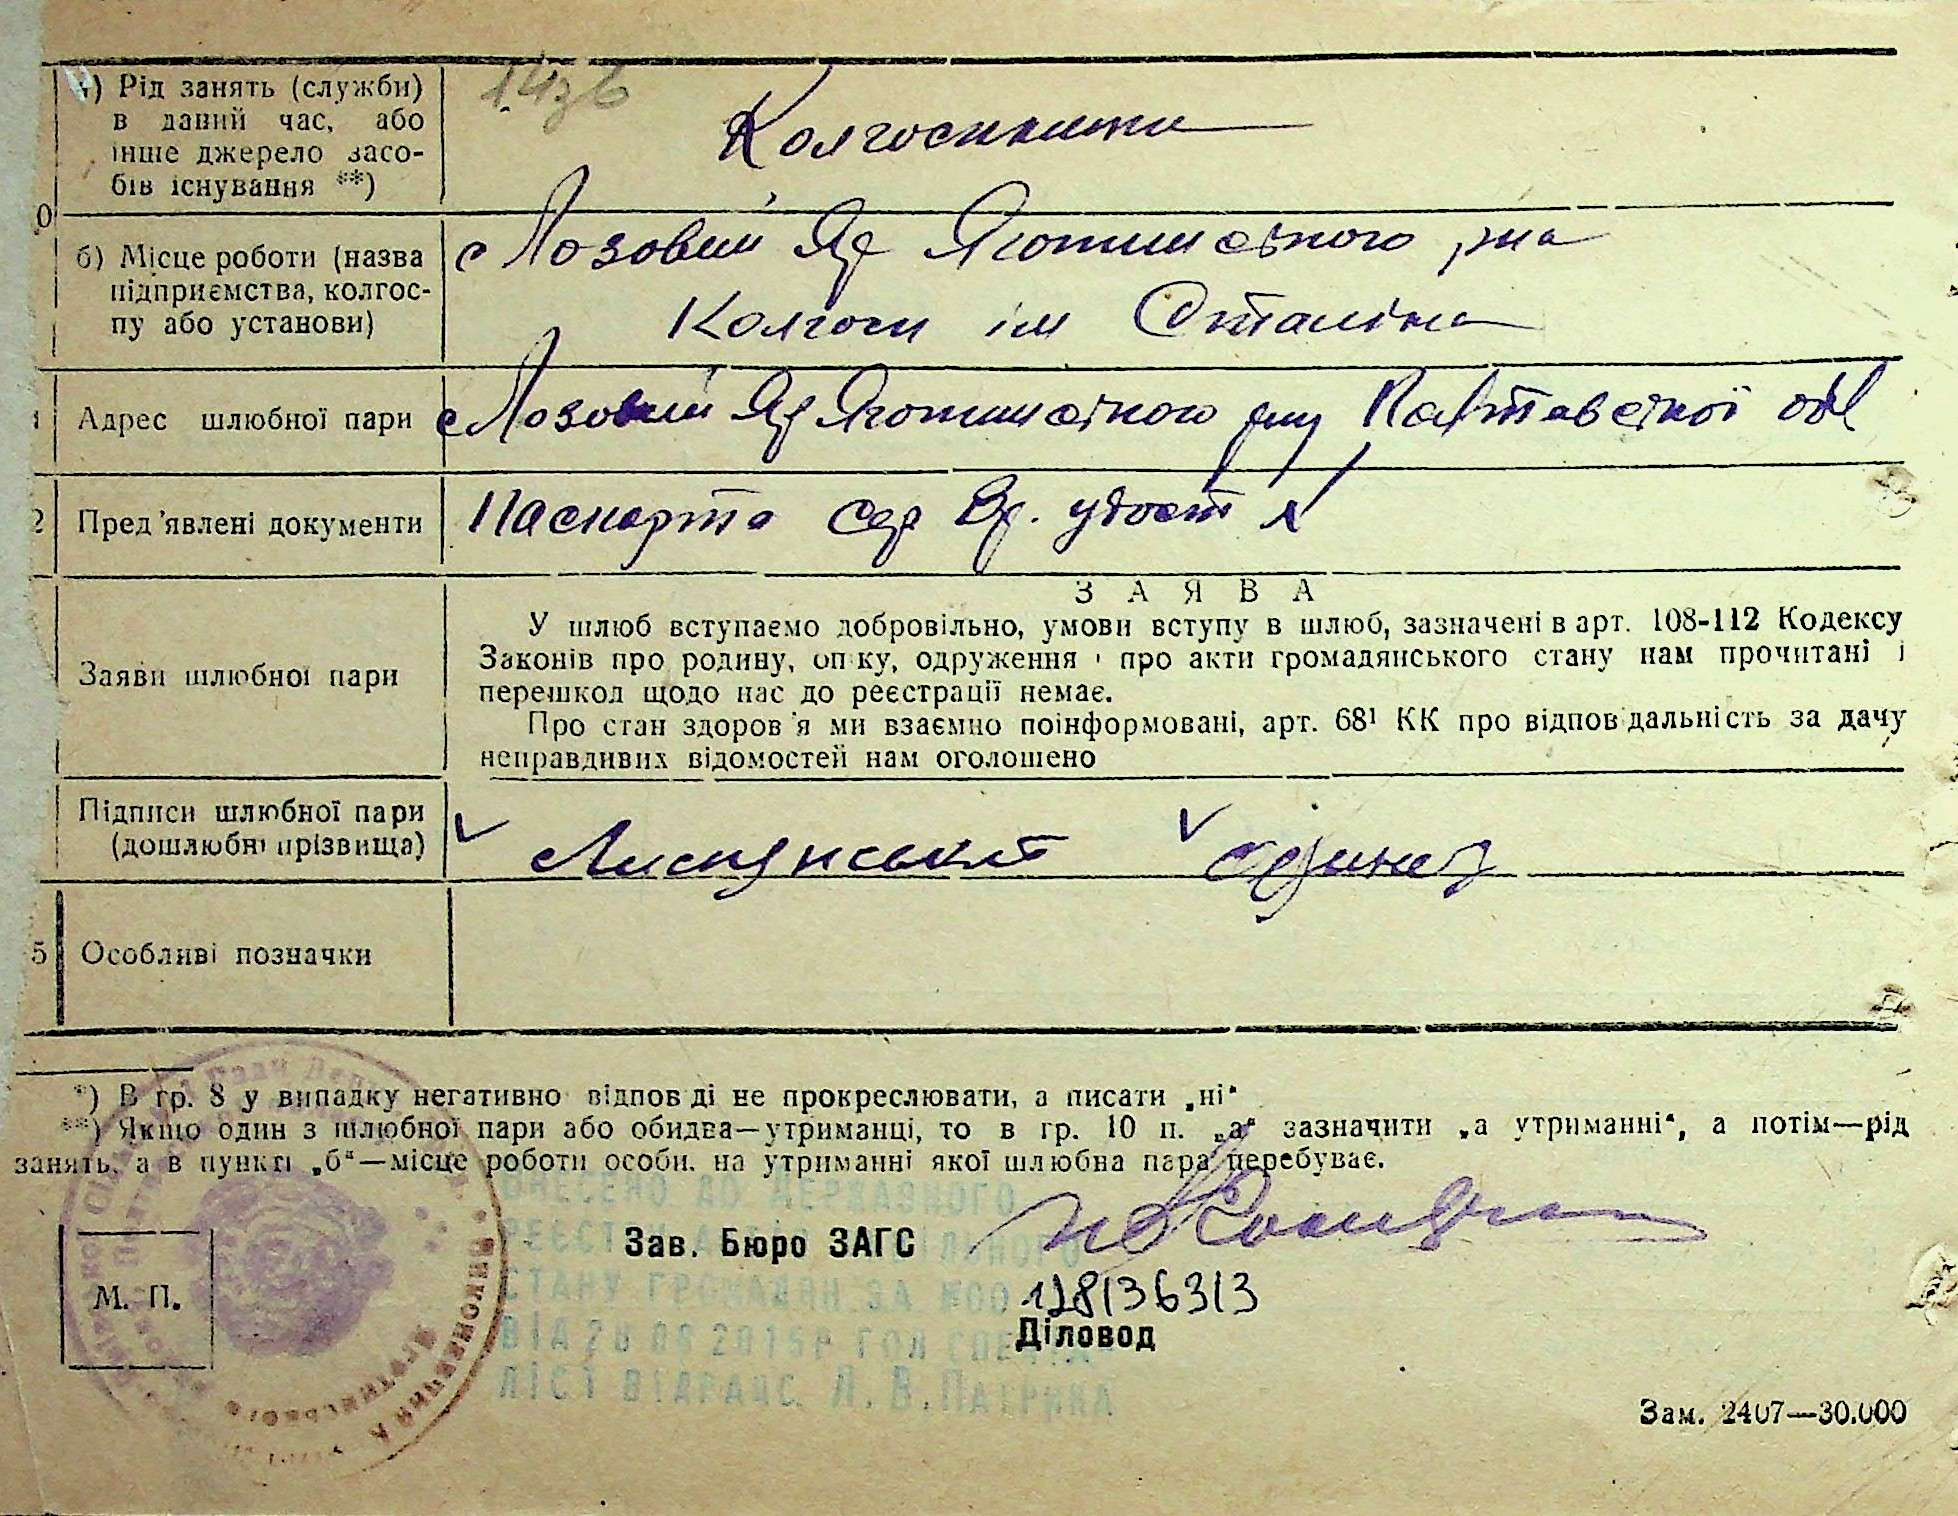 а) Рід занять (служби)
в даний час, або
інше джерело засо-
бів існування **)
Колгоспники
10
б) Місце роботи (назва
підприємства, колгос-
пу або установи)
с Лозовий Яр Яготинського р-на
Колгосп ім Сталіна
Адрес шлюбної пари
с Лозовий Яр Яготинського р-ну Полтавської обл
2
Пред'явлені документи
Паспорта
ЗАЯВА
Заяви шлюбної пари
У шлюб вступаємо добровільно, умови вступу в шлюб, зазначені в арт. 108-112 Кодексу
Законів про родину, опіку, одруження і про акти громадянського стану нам прочитані і
перешкод щодо нас до реєстрації немає.
Про стан здоров'я ми взаємно поінформовані, арт. 68¹ КК про відповідальність за дачу
неправдивих відомостей нам оголошено
Підписи шлюбної пари
(дошлюбні прізвища)
5
Особливі позначки
*) В гр. 8 у випадку негативно відповіді не прокреслювати, а писати „ні“
**) Якщо один з шлюбної пари або обидва—утриманці, то в гр. 10 п. „а“ зазначити „а утриманні“, а потім—рід
занять, а в пункті „б“—місце роботи особи, на утриманні якої шлюбна пара перебуває.
ВНЕСЕНО ДО ДЕРЖАВНОГО
Зав. Бюро ЗАГС
СТАНУ ГРОМАДЯН ЗА №00
М. П.
Діловод
Зам. 2407—30.000